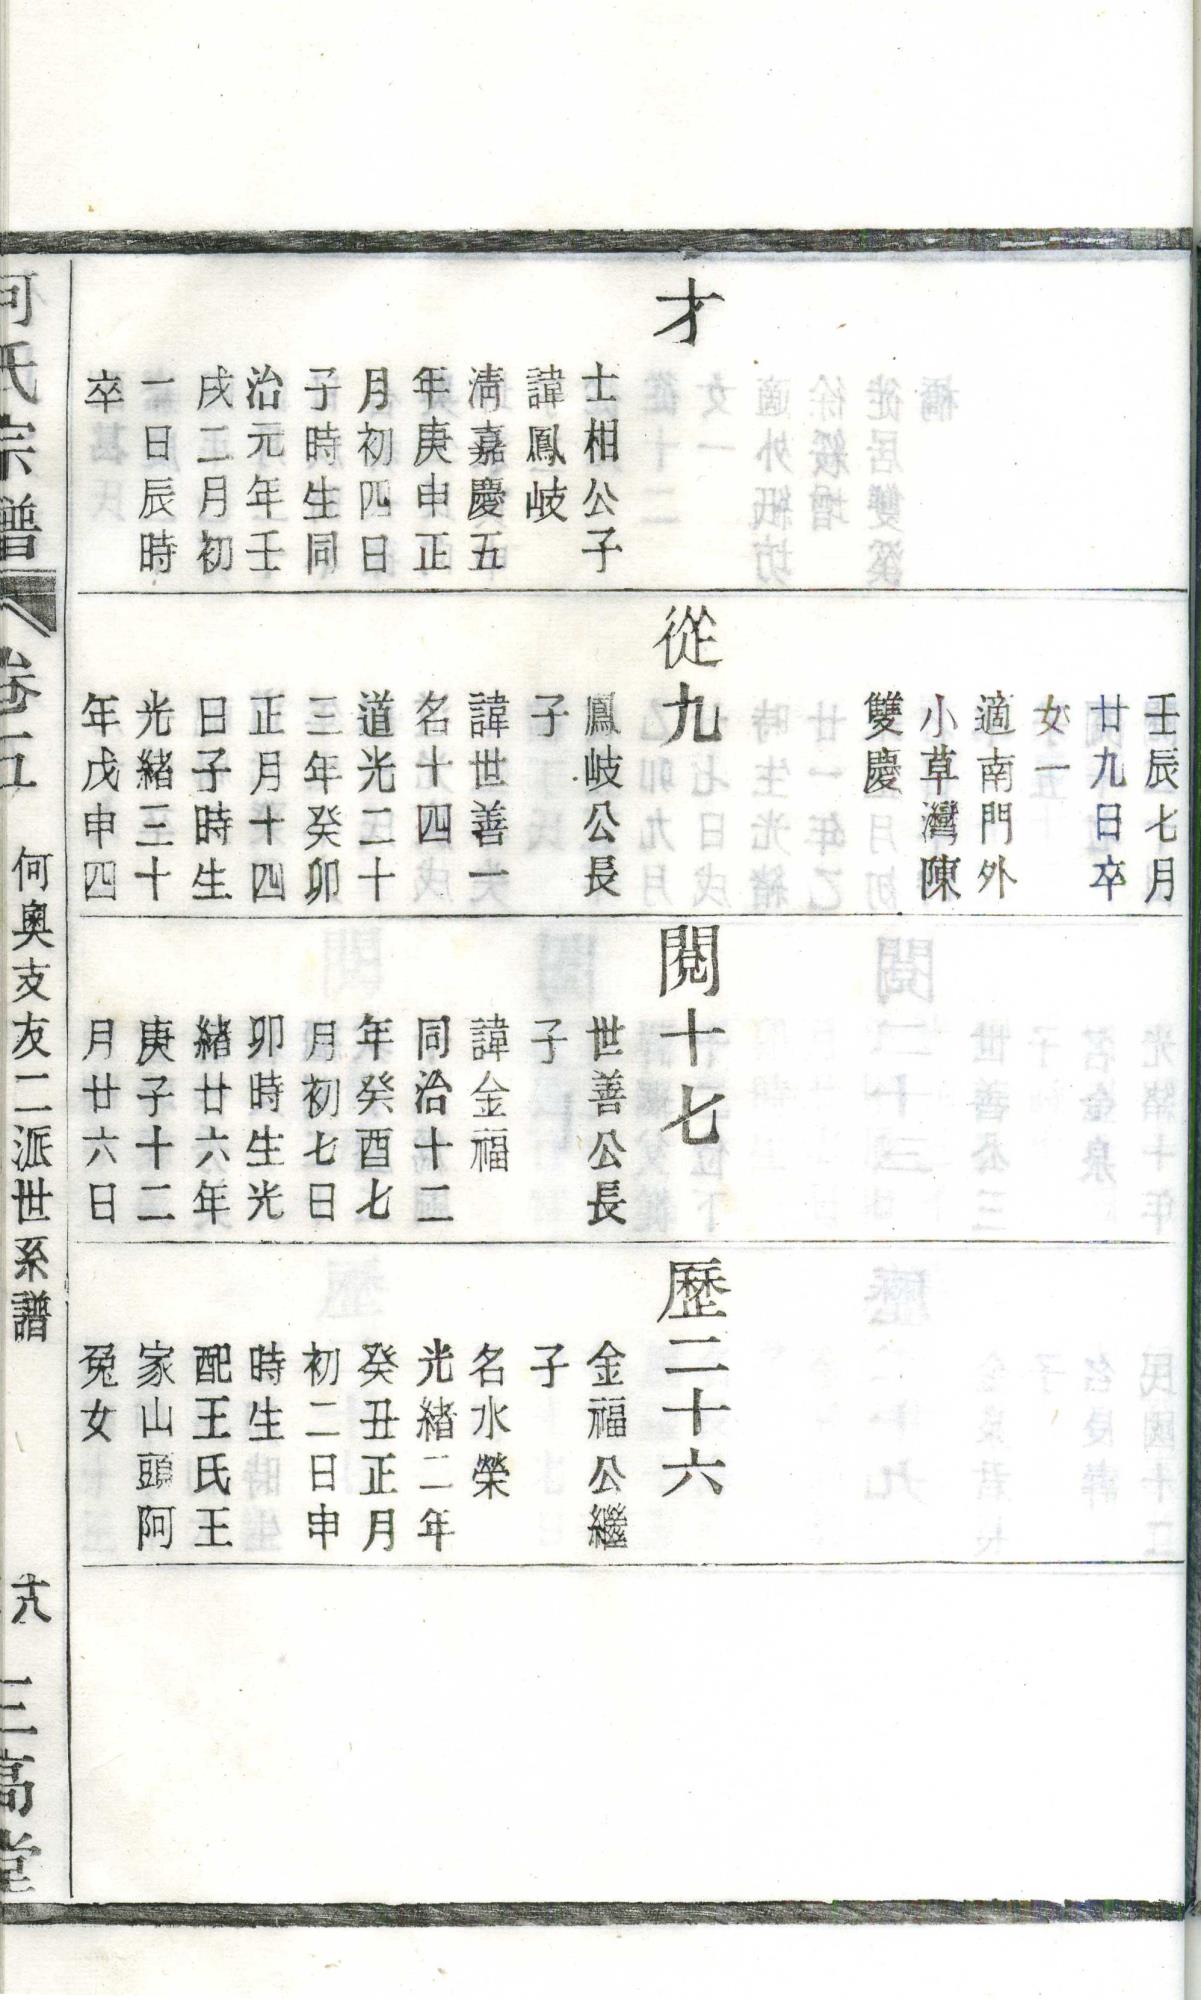 才
士相公子
諱鳳岐
清嘉慶五
年庚申正
月初四日
子時生同
治元年壬
戌正月初
一日辰時
卒
壬辰七月
廿九日卒
女一
適南門外
小草灣陳
雙慶
從九
鳳岐公長
子
諱世善一
名十四
道光二十
三年癸卯
正月十四
日子時生
光緒三十
年戊申四
閱十七
世善公長
子
諱金福
同治十二
年癸酉七
月初七日
卯時生光
緒廿六年
庚子十二
月廿六日
歷二十六
金福公繼
子
名水榮
光緒二年
癸丑正月
初二日申
時生
配王氏王
家山頭阿
兔女
何氏宗譜
卷五
何奧支友二派世系譜
三高堂